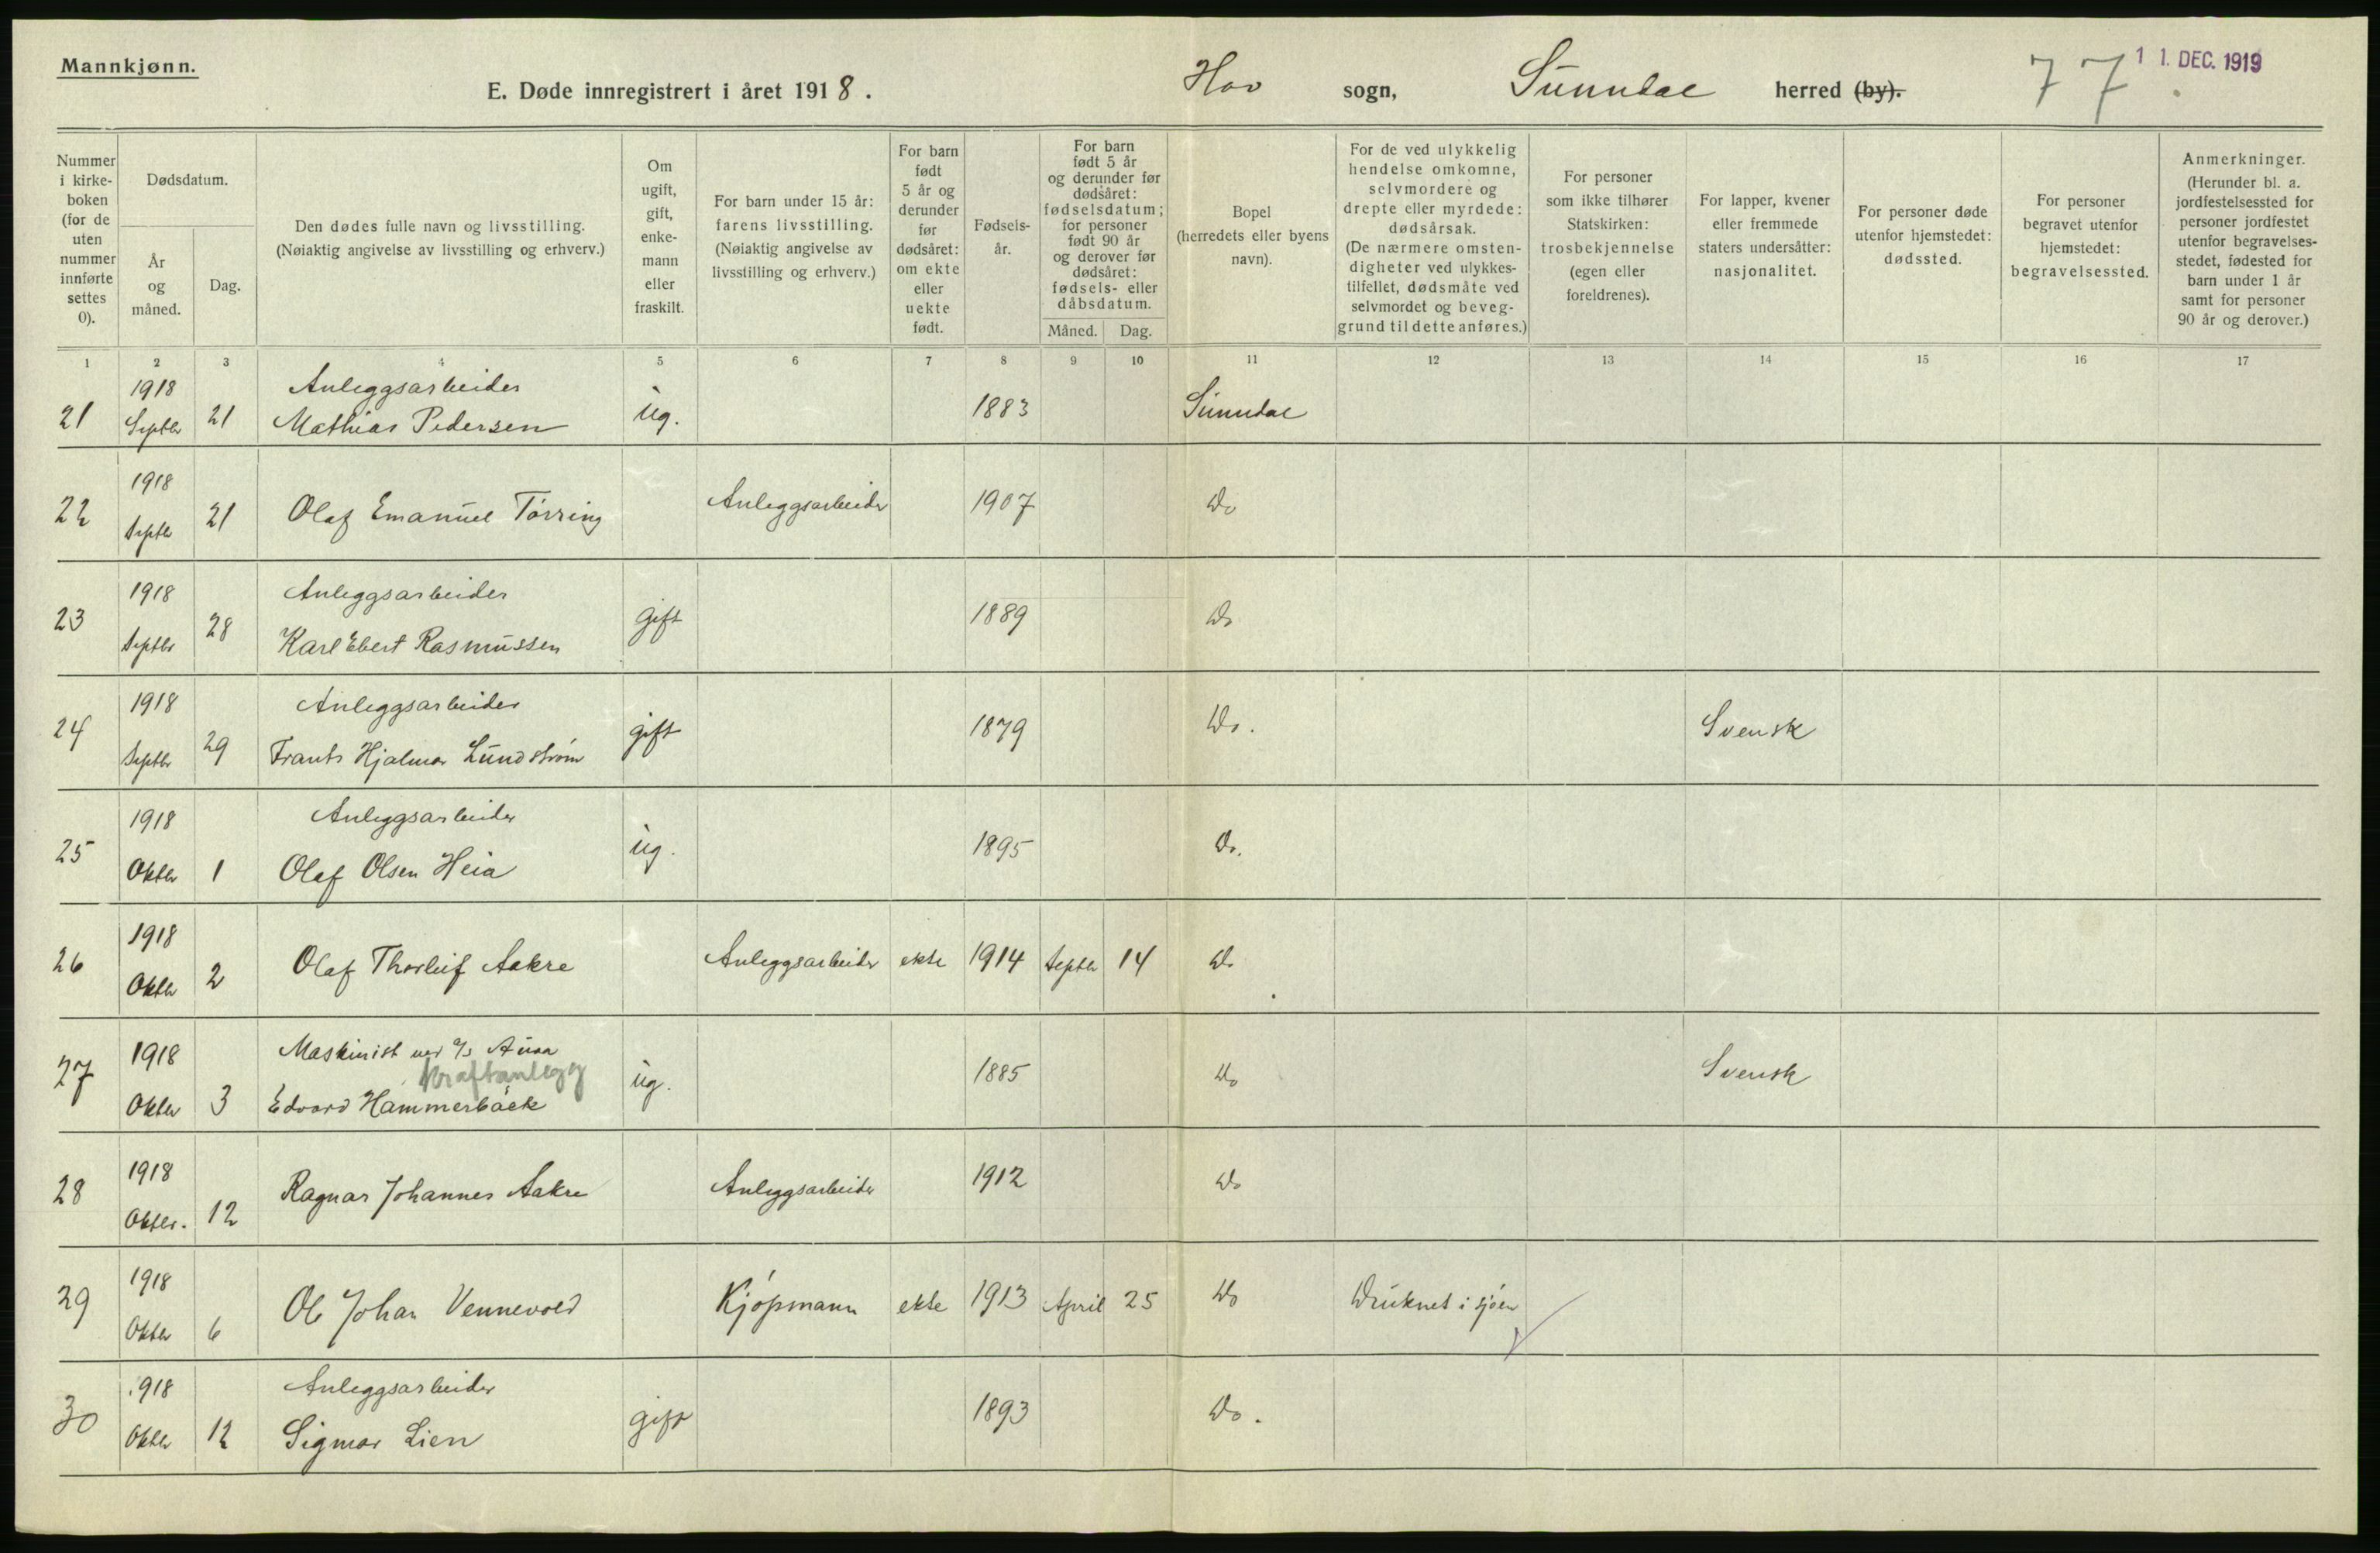 Mannkjønn.
E. Døde innregistrert i året 1918.
Hov sogn, Sunndal herred (by).
77.
1 1. DEC. 1919
Nummer i kirke-boken (for de uten nummer innførte settes 0).
Dødsdatum.
År og måned.
Dag.
Den dødes fulle navn og livsstilling.
(Nøiaktig angivelse av livsstilling og erhverv.)
Om ugift, gift, enke-mann eller fraskilt.
For barn under 15 år: farens livsstilling.
(Nøiaktig angivelse av livsstilling og erhverv.)
For barn født 5 år og derunder før dødsåret: om ekte eller uekte født.
Fødsels-år.
For barn født 5 år og derunder før dødsåret: fødselsdatum; for personer født 90 år og derover før dødsåret: fødsels- eller dåbsdatum.
Måned. Dag.
Bopel (herredets eller byens navn).
For de ved ulykkelig hendelse omkomne, selvmordere og drepte eller myrdede: dødsårsak.
(De nærmere omsten-digheter ved ulykkes-tilfellet, dødsmåte ved selvmordet og beveg-grund til dette anføres.)
For personer som ikke tilhører Statskirken: trosbekjennelse (egen eller foreldrenes).
For lapper, kvener eller fremmede staters undersåtter: nasjonalitet.
For personer døde utenfor hjemstedet: dødssted.
For personer begravet utenfor hjemstedet: begravelsessted.
Anmerkninger.
(Herunder bl. a. jordfestelsessted for personer jordfestet utenfor begravelses-stedet, fødested for barn under 1 år samt for personer 90 år og derover.)
1 2 3 4 5 6 7 8 9 10 11 12 13 14 15 16 17
1918 Anleggsarbeider
21 Septbr 21 Mathias Pedersen ug. 1883 Sunndal
1918
22 Septbr 21 Olaf Emanuel Tørring Anleggsarbeider 1907 Do
1918 Anleggsarbeider
23 Septbr 28 Karl Ebert Rasmussen gift 1889 Do
1918 Anleggsarbeider
24 Septbr 29 Frants Hjalmar Lundstrøm gift 1879 Do. Svensk
1918 Anleggsarbeider
25 Oktbr 1 Olaf Olsen Heia ug. 1895 Do.
1918
26 Oktbr 2 Olaf Thorleif Aakre Anleggsarbeider ekte 1914 Septbr 14 Do
1918 Maskinist ved A/S Aura
kraftanlegg
27 Oktbr 3 Edvard Hammerbäck ug. 1885 Do Svensk
1918
28 Oktbr. 12 Ragnar Johannes Aakre Anleggsarbeider 1912 Do
1918
29 Oktbr 6 Ole Johan Vennevold Kjøpmann ekte 1913 April 25 Do Druknet i sjøen
1918 Anleggsarbeider
30 Oktbr 12 Sigmar Lien gift 1893 Do.